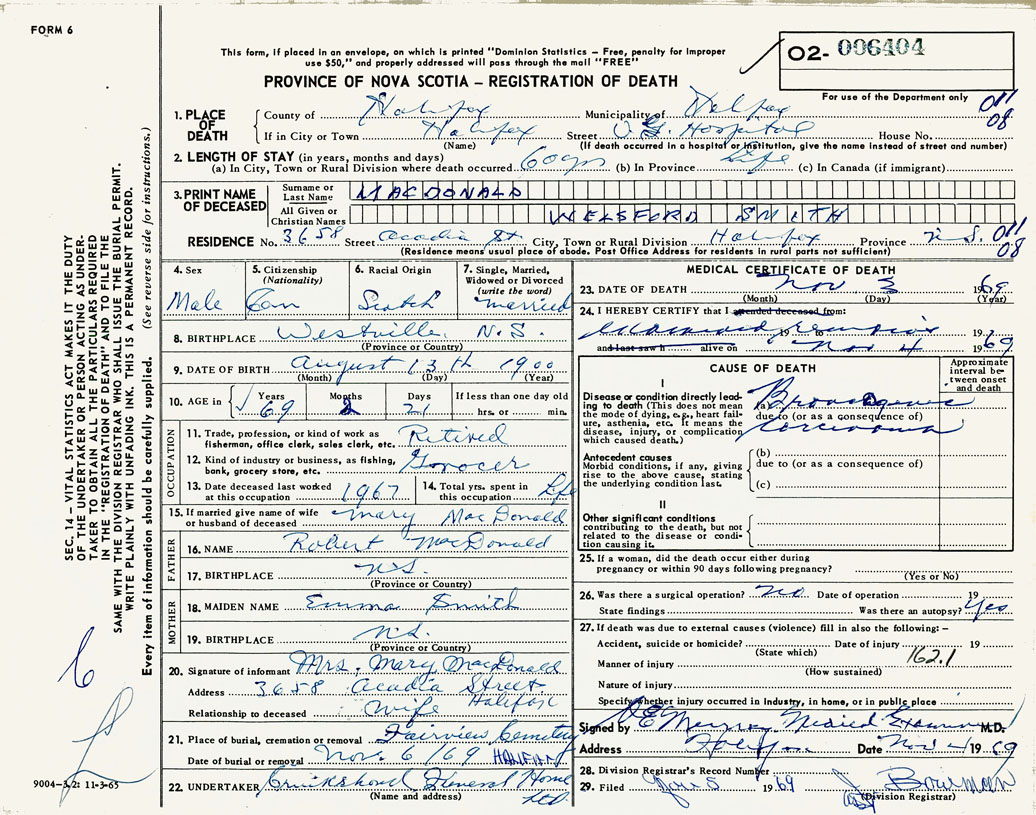 FORM 6
This form, if placed in an envelope, on which is printed "Dominion Statistics – Free, penalty for improper
use $50," and properly addressed will pass through the mail "FREE"
O2- 006404
PROVINCE OF NOVA SCOTIA – REGISTRATION OF DEATH
For use of the Department only
011
08
1. PLACE OF DEATH
County of Halifax Municipality of Halifax
If in City or Town Halifax Street V.G. Hospital House No.
(Name) (If death occurred in a hospital or institution, give the name instead of street and number)
2. LENGTH OF STAY (in years, months and days)
(a) In City, Town or Rural Division where death occurred 60 yrs (b) In Province Life (c) In Canada (if immigrant)
3. PRINT NAME OF DECEASED
Surname or Last Name MACDONALD
All Given or Christian Names WELSFORD SMITH
RESIDENCE No. 3658 Street Acadia St. City, Town or Rural Division Halifax Province N.S. 011
08
(Residence means usual place of abode. Post Office Address for residents in rural parts not sufficient)
4. Sex Male
5. Citizenship (Nationality) Can
6. Racial Origin Scotch
7. Single, Married, Widowed or Divorced (write the word) married
8. BIRTHPLACE Westville N.S.
(Province or Country)
9. DATE OF BIRTH August 13th 1900
(Month) (Day) (Year)
10. AGE in Years 69 Months 2 Days 21 If less than one day old hrs. or min.
OCCUPATION
11. Trade, profession, or kind of work as fisherman, office clerk, sales clerk, etc. Retired
12. Kind of industry or business, as fishing, bank, grocery store, etc. Grocer
13. Date deceased last worked at this occupation 1967
14. Total yrs. spent in this occupation Life
15. If married give name of wife or husband of deceased Mary MacDonald
FATHER
16. NAME Robert MacDonald
17. BIRTHPLACE N.S.
(Province or Country)
MOTHER
18. MAIDEN NAME Emma Smith
19. BIRTHPLACE N.S.
(Province or Country)
20. Signature of informant Mrs. Mary MacDonald
Address 3658 Acadia Street Halifax
Relationship to deceased Wife
21. Place of burial, cremation or removal Fairview Cemetery
Date of burial or removal Nov. 6/69 HALIFAX
22. UNDERTAKER Cruikshank Funeral Home Ltd.
(Name and address)
MEDICAL CERTIFICATE OF DEATH
23. DATE OF DEATH Nov 3 1969
(Month) (Day) (Year)
24. I HEREBY CERTIFY that I attended deceased from:
19 to remains 19
and last saw h alive on Nov 4 1969
CAUSE OF DEATH
Approximate interval between onset and death
I
Disease or condition directly leading to death (This does not mean the mode of dying, e.g., heart failure, asthenia, etc. It means the disease, injury, or complication which caused death.)
(a) Bronchogenic
due to (or as a consequence of)
carcinoma
Antecedent causes
Morbid conditions, if any, giving rise to the above cause, stating the underlying condition last.
(b)
due to (or as a consequence of)
(c)
II
Other significant conditions
contributing to the death, but not related to the disease or condition causing it.
25. If a woman, did the death occur either during pregnancy or within 90 days following pregnancy?
(Yes or No)
26. Was there a surgical operation? No Date of operation 19
State findings Was there an autopsy? Yes
27. If death was due to external causes (violence) fill in also the following: –
Accident, suicide or homicide? Date of injury 19
(State which) 162.1
Manner of injury
(How sustained)
Nature of injury
Specify whether injury occurred in industry, in home, or in public place
Signed by Medical Examiner M.D.
Address Halifax Date Nov 4 1969
28. Division Registrar's Record Number
29. Filed Nov 5 1969 J. Bowman
(Division Registrar)
SEC. 14 – VITAL STATISTICS ACT MAKES IT THE DUTY
OF THE UNDERTAKER OR PERSON ACTING AS UNDER-
TAKER TO OBTAIN ALL THE PARTICULARS REQUIRED
IN THE "REGISTRATION OF DEATH" AND TO FILE THE
SAME WITH THE DIVISION REGISTRAR WHO SHALL ISSUE THE BURIAL PERMIT.
WRITE PLAINLY WITH UNFADING INK. THIS IS A PERMANENT RECORD.
Every item of information should be carefully supplied. (See reverse side for instructions.)
9004-3/2: 11-3-65